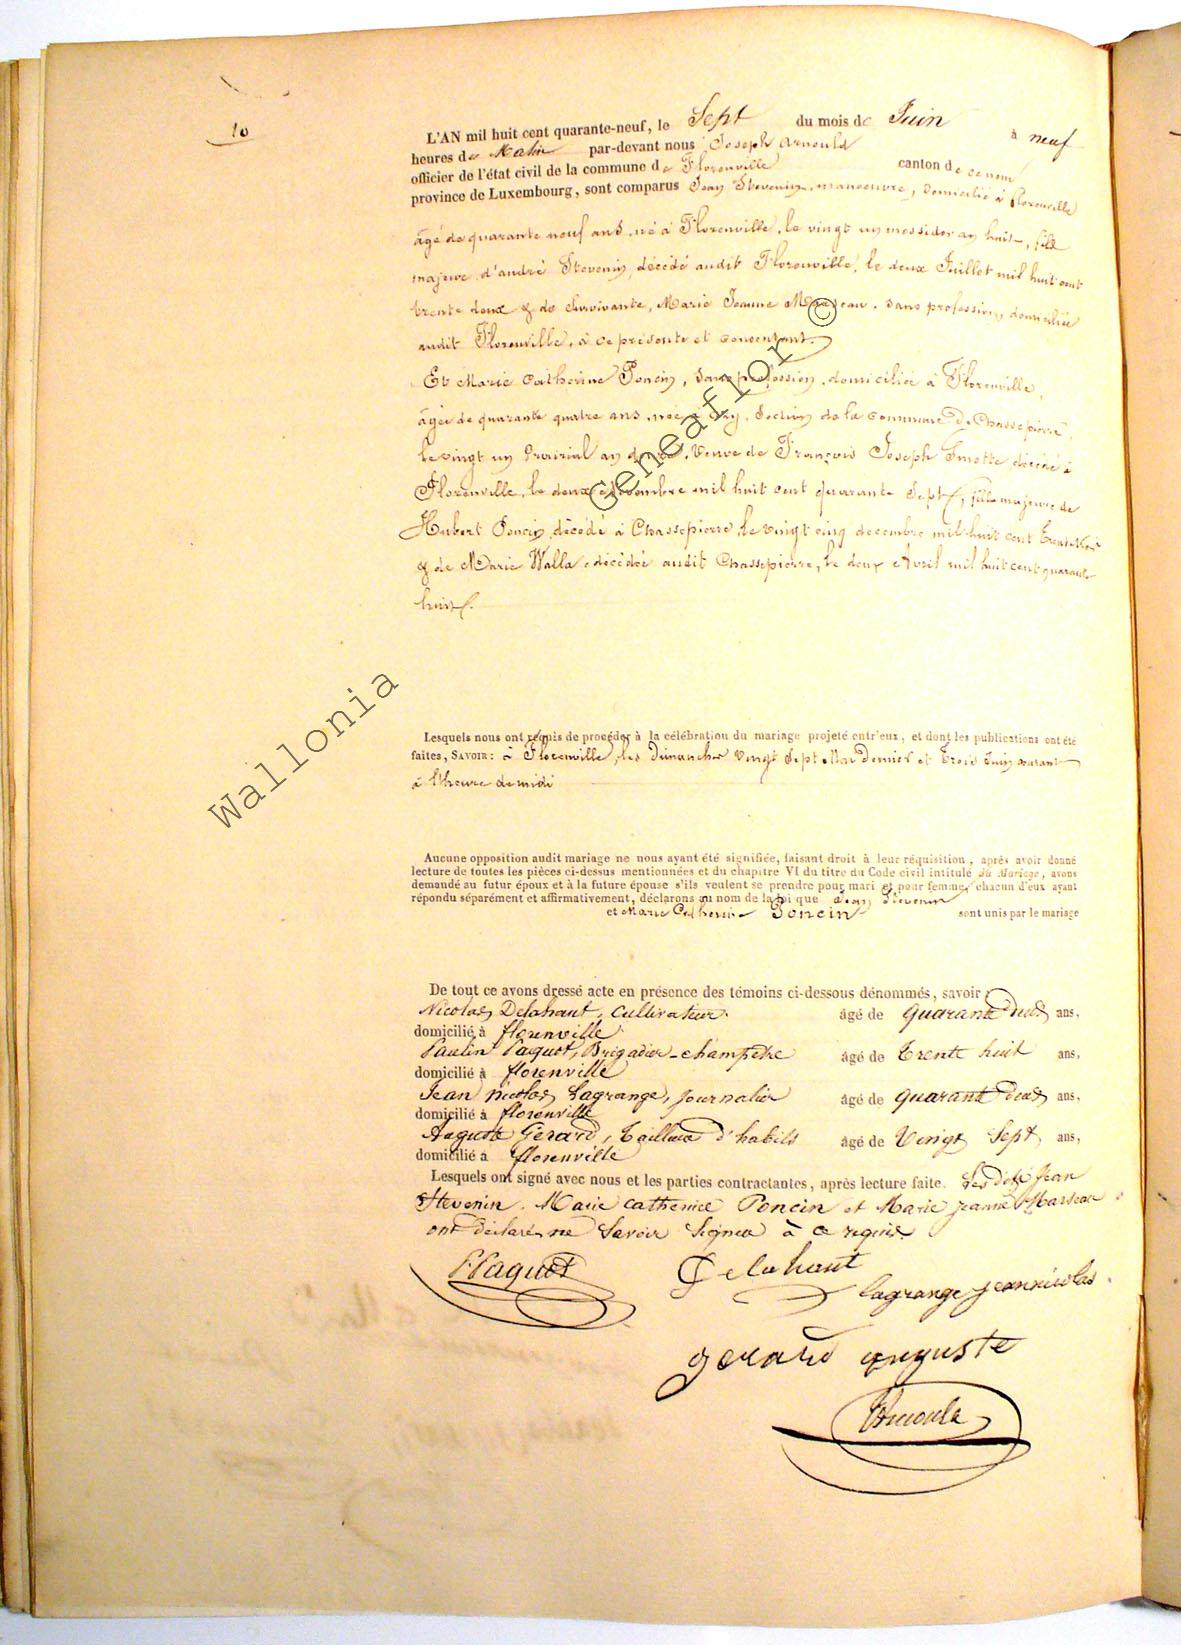 10
L'AN mil huit cent quarante-neuf, le Sept du mois de Juin à neuf
heures de Matin par-devant nous Joseph Arnould
officier de l'état civil de la commune de Florenville canton de ce nom
province de Luxembourg, sont comparus Jean Stevenin, manoeuvre, domicilié à Florenville
âgé de quarante neuf ans, né à Florenville, le vingt un messidor an huit, fils
majeur d'andré Stevenin, décédé audit Florenville, le deux Juillet mil huit cent
trente deux & de Survivante, Marie Jeanne Marseau, sans profession, domiciliée
audit Florenville, à ce présente et consentant.
Et Marie Catherine Poncin, sans profession, domiciliée à Florenville,
âgée de quarante quatre ans, née à Section de la Commune de Chassepierre,
le vingt un Prairial an douze, Veuve de François Joseph décédé à
Florenville, le deux Novembre mil huit cent quarante Sept, fille majeure de
Hubert Poncin, décédé à Chassepierre, le vingt cinq decembre mil huit cent trente
& de Marie Walla, décédée audit Chassepierre, le deux Avril mil huit cent quarante
huit.
Lesquels nous ont requis de procéder à la célébration du mariage projeté entr'eux, et dont les publications ont été
faites, SAVOIR : à Florenville, les dimanches vingt Sept Mai Dernier et Trois Juin courant
à l'heure de midi
Aucune opposition audit mariage ne nous ayant été signifiée, faisant droit à leur réquisition, après avoir donné
lecture de toutes les pièces ci-dessus mentionnées et du chapitre VI du titre du Code civil intitulé du Mariage, avons
demandé au futur époux et à la future épouse s'ils veulent se prendre pour mari et pour femme, chacun d'eux ayant
répondu séparément et affirmativement, déclarons au nom de la loi que Jean Stevenin
et Marie Catherine Poncin sont unis par le mariage
De tout ce avons dressé acte en présence des témoins ci-dessous dénommés, savoir :
Nicolas Delahaut, Cultivateur âgé de quarante deux ans,
domicilié à florenville
Paulin Paquot, Brigadier-champêtre âgé de Trente huit ans,
domicilié à florenville
Jean nicolas Lagrange, journalier âgé de quarante deux ans,
domicilié à florenville
Auguste Gerard, Tailleur d'habits âgé de Vingt Sept ans,
domicilié à florenville
Lesquels ont signé avec nous et les parties contractantes, après lecture faite. Les dits Jean
Stevenin, Marie catherine Poncin et Marie jeanne Marseau
ont déclaré ne Savoir Signer à ce requis.
P Paquot Delahaut
lagrange jeannicolas
gerard auguste
Arnould
Wallonia Geneaflor ©